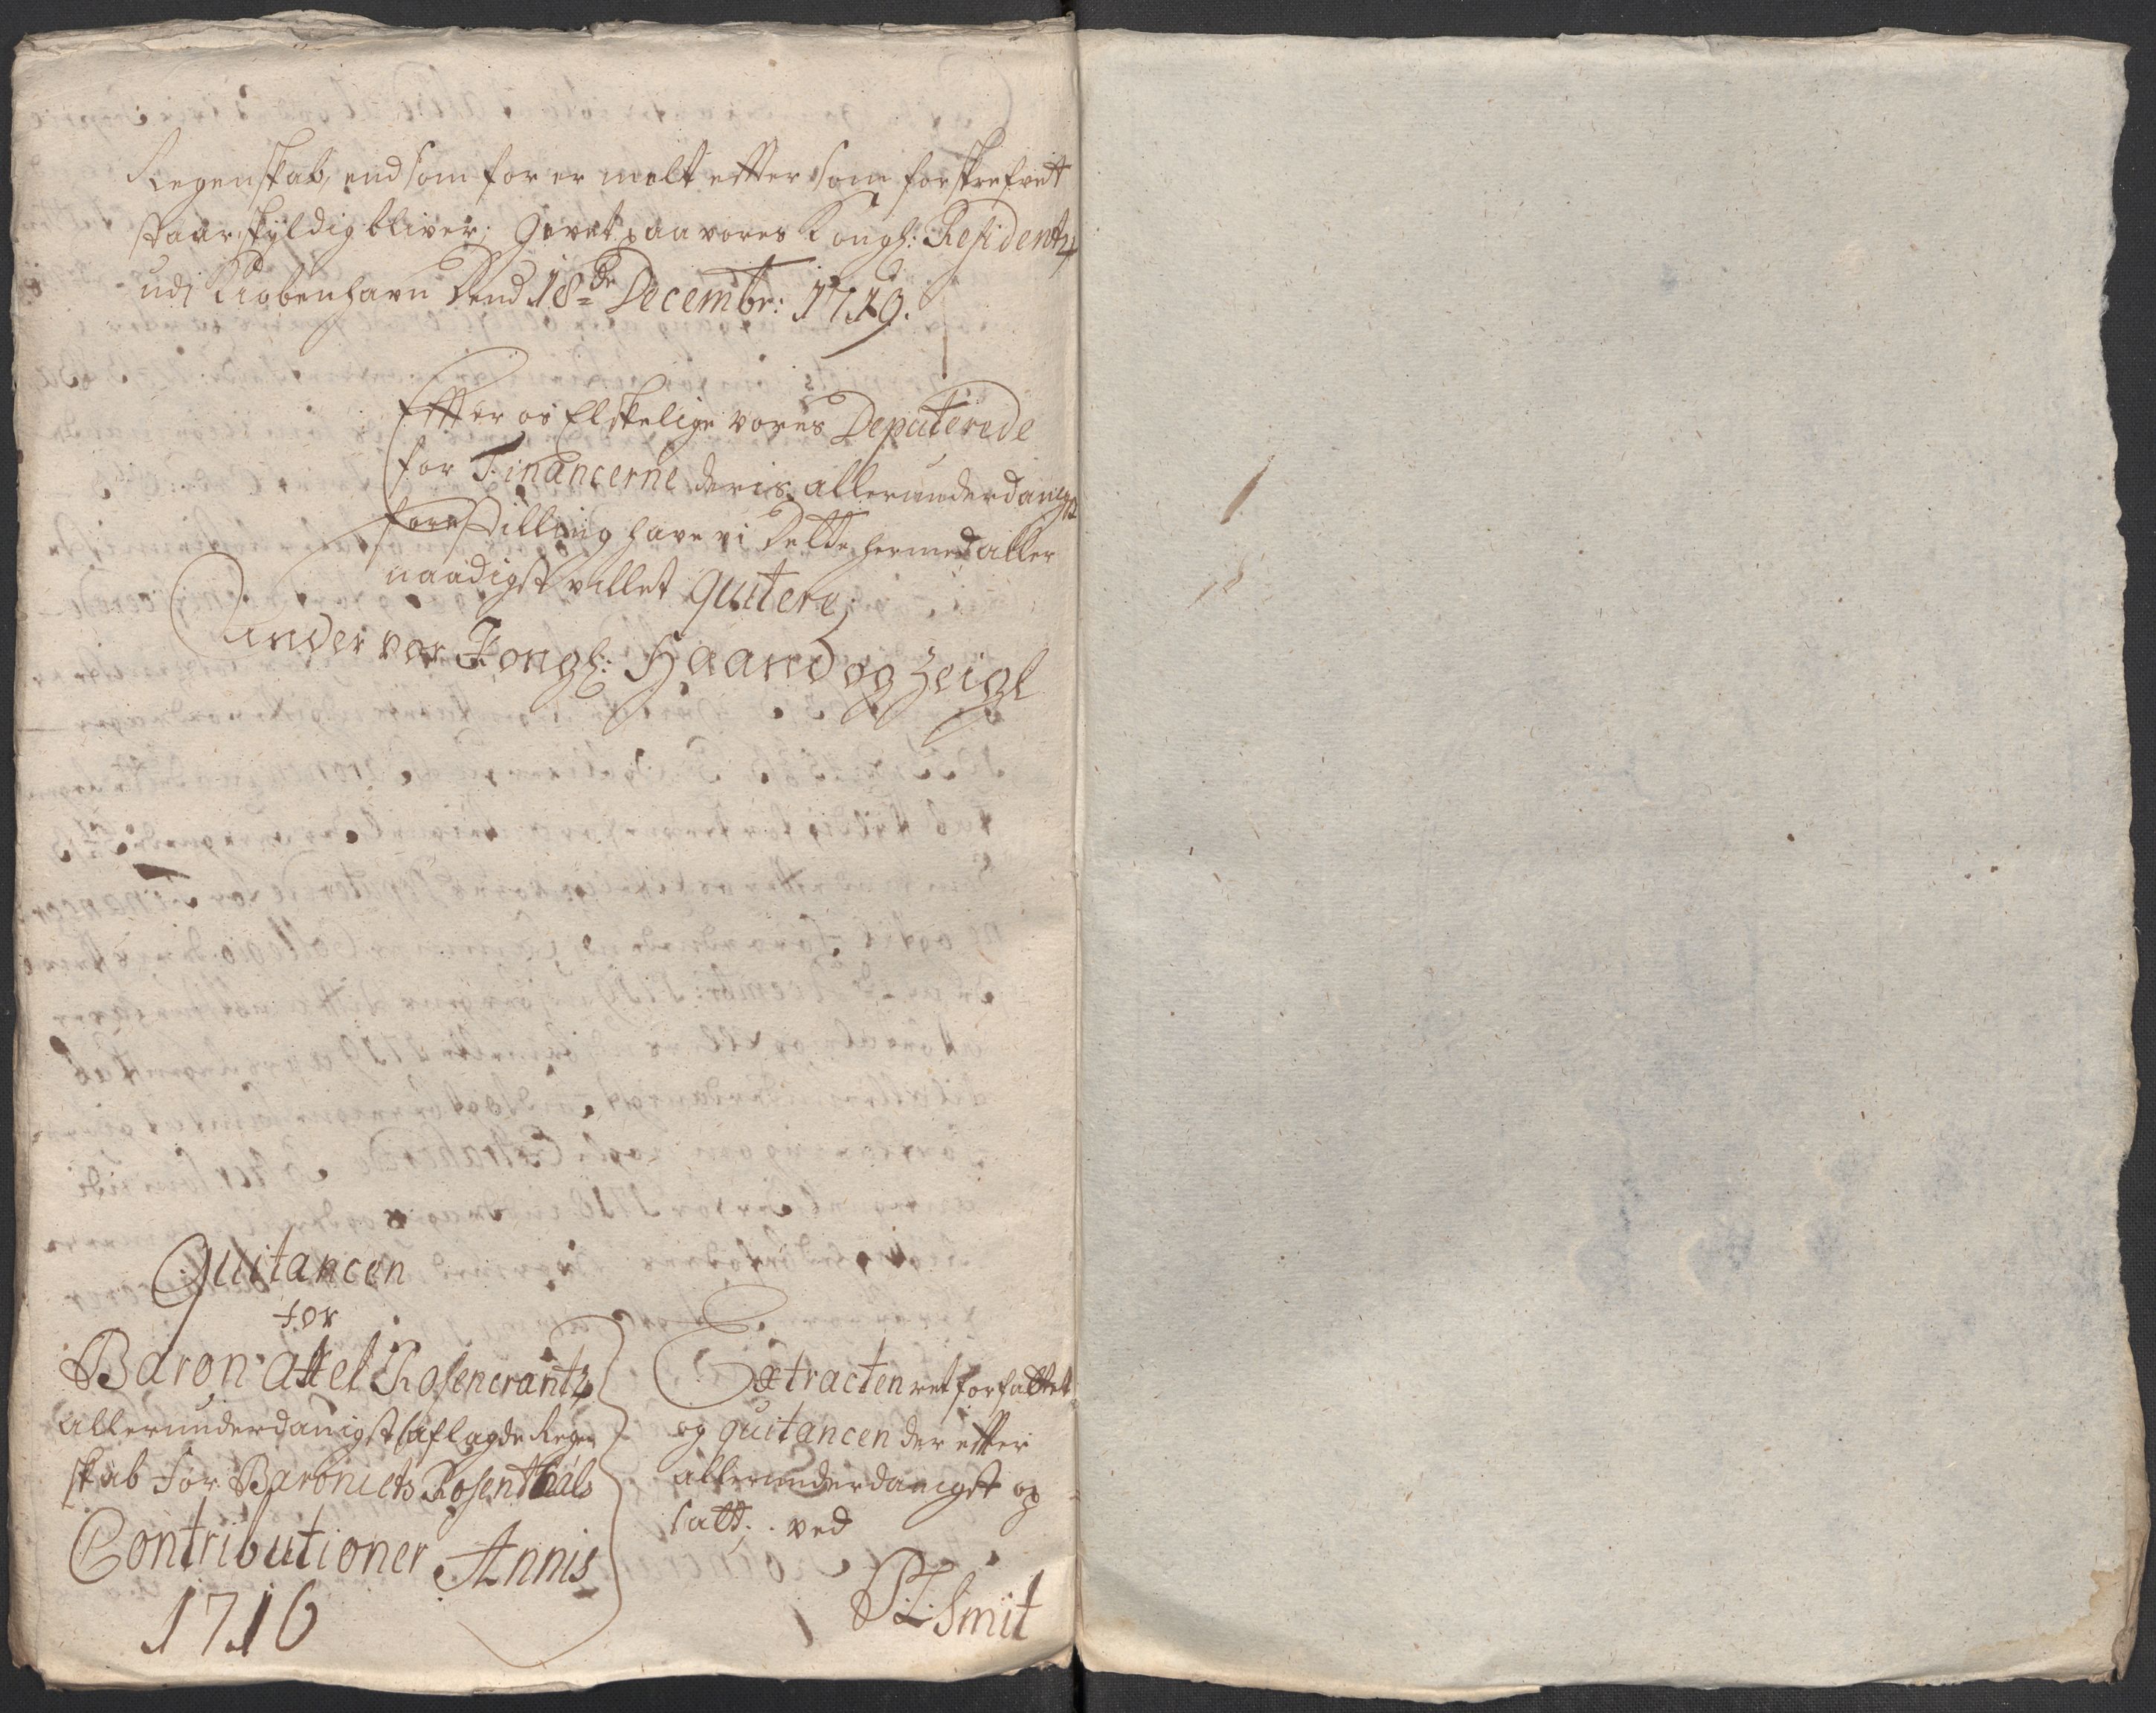 Regenskab, end som for er melt efter som forskrefvet
staar, skyldig bliver; Givet paa vores Kongl: Residentz
udj Kiøbenhavn Dend 18de Decembr: 1719.
Effter os Elskelige vores Deputerede
for Financerne deris allerunderdanigst
forestilling have vi Dette hermed aller
naadigst villet quitere;
Under vor Kongl: Haand og Zeigl
Quitancen
for
Baron Axel Rosencrantz
allerunderdanigst aflagde Regen
skab for Baroniets Rosenthals
Contributioner Annis
1716
Extracten ret forfattet
og quitancen der effter
allerunderdanigst op
satt. ved
P. L. Smit